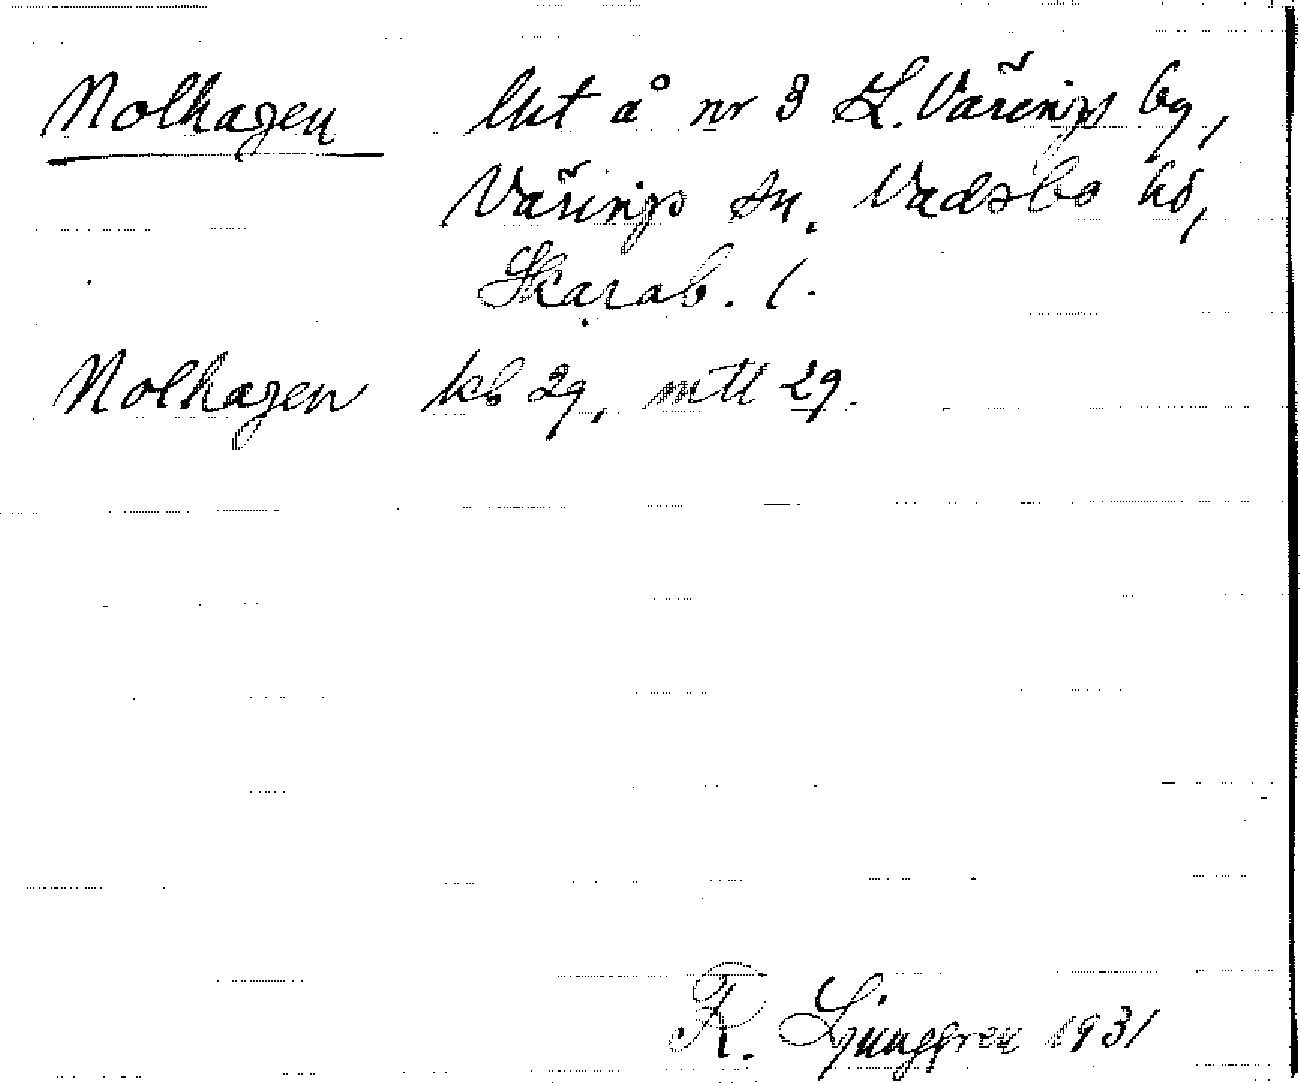 Nolhagen lht å nr 3 L. Värings by,
Värings sn. Vadsbo hd,
Skarab. l.
Nolhagen kb 29, mtl 29.
R. Ljunggren 1931